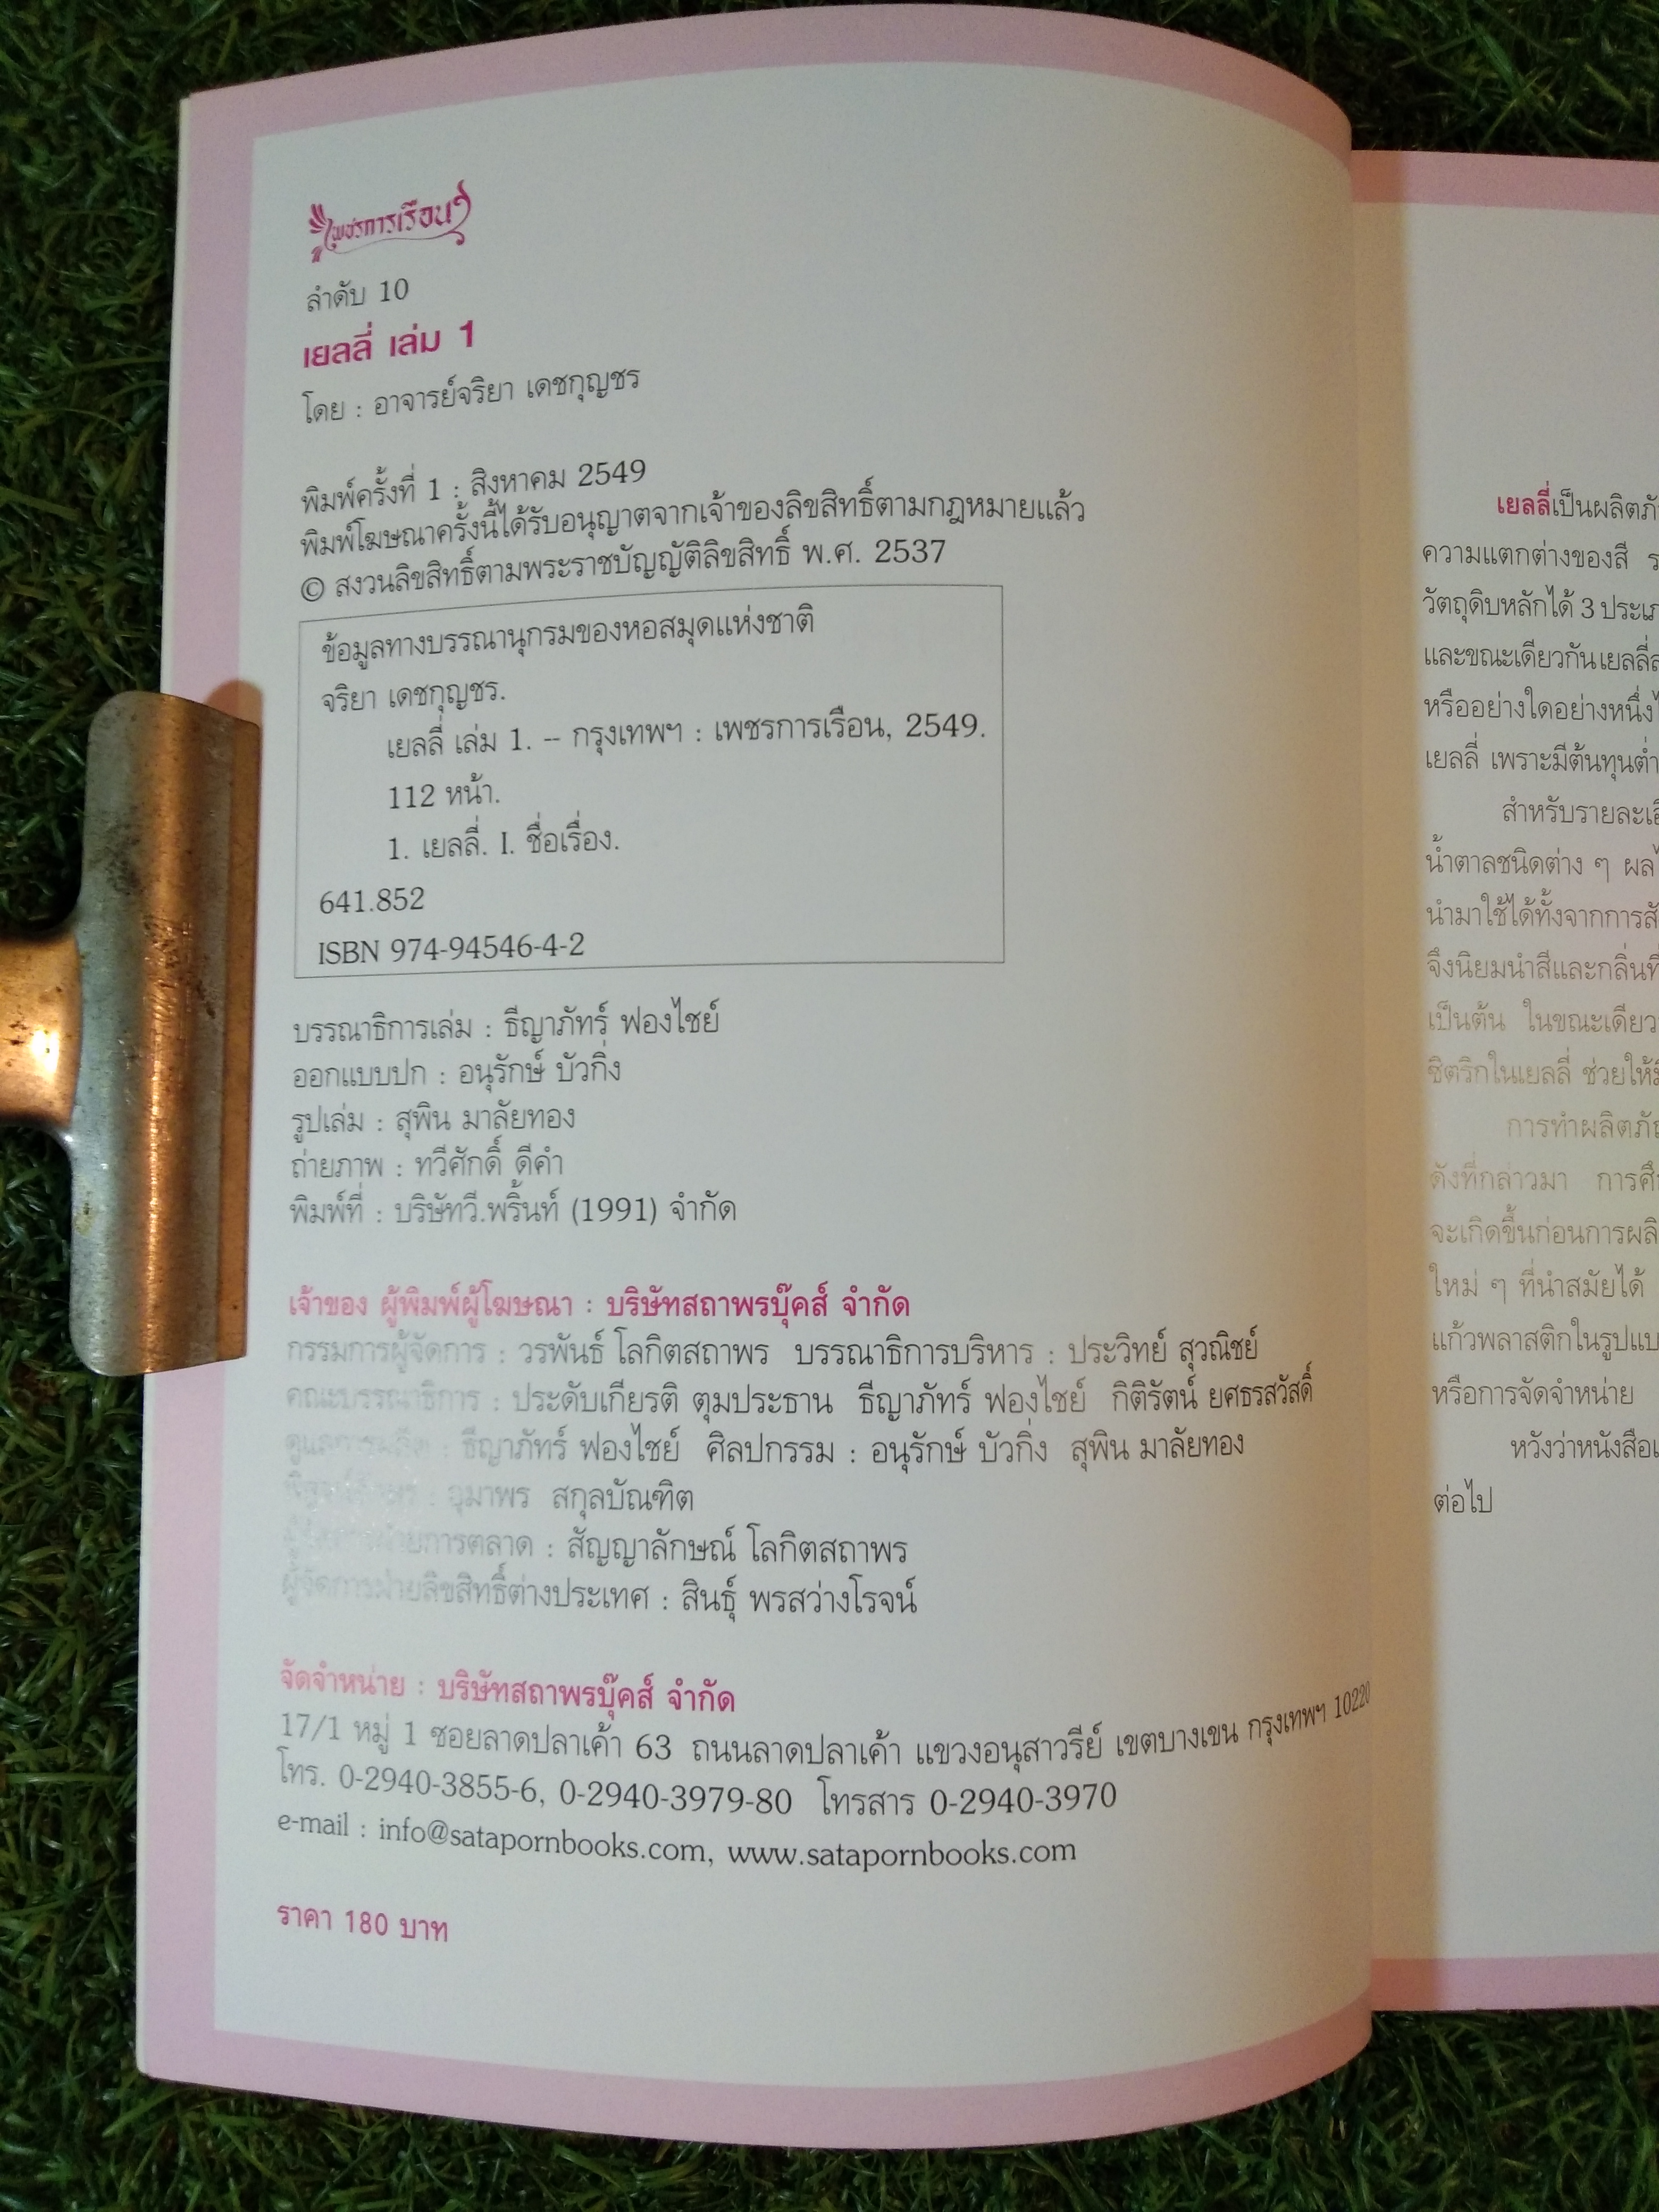 เพชรการเรือน
ลำดับ 10
เยลลี่ เล่ม 1
โดย : อาจารย์จริยา เดชกุญชร
พิมพ์ครั้งที่ 1 : สิงหาคม 2549
พิมพ์โฆษณาครั้งนี้ได้รับอนุญาตจากเจ้าของลิขสิทธิ์ตามกฎหมายแล้ว
© สงวนลิขสิทธิ์ตามพระราชบัญญัติลิขสิทธิ์ พ.ศ. 2537
ข้อมูลทางบรรณานุกรมของหอสมุดแห่งชาติ
จริยา เดชกุญชร.
เยลลี่ เล่ม 1. -- กรุงเทพฯ : เพชรการเรือน, 2549.
112 หน้า.
1. เยลลี่. I. ชื่อเรื่อง.
641.852
ISBN 974-94546-4-2
บรรณาธิการเล่ม : ธีญาภัทร์ ฟองไชย์
ออกแบบปก : อนุรักษ์ บัวกิ่ง
รูปเล่ม : สุพิน มาลัยทอง
ถ่ายภาพ : ทวีศักดิ์ ดีคำ
พิมพ์ที่ : บริษัทวี.พริ้นท์ (1991) จำกัด
เจ้าของ ผู้พิมพ์ผู้โฆษณา : บริษัทสถาพรบุ๊คส์ จำกัด
กรรมการผู้จัดการ : วรพันธ์ โลกิตสถาพร บรรณาธิการบริหาร : ประวิทย์ สุวณิชย์
คณะบรรณาธิการ : ประดับเกียรติ ตุมประธาน ธีญาภัทร์ ฟองไชย์ กิติรัตน์ ยศธรสวัสดิ์
ดูแลการผลิต : ธีญาภัทร์ ฟองไชย์ ศิลปกรรม : อนุรักษ์ บัวกิ่ง สุพิน มาลัยทอง
: อุมาพร สกุลบัณฑิต
ผู้จัดการฝ่ายการตลาด : สัญญาลักษณ์ โลกิตสถาพร
ผู้จัดการฝ่ายลิขสิทธิ์ต่างประเทศ : สินธุ์ พรสว่างโรจน์
จัดจำหน่าย : บริษัทสถาพรบุ๊คส์ จำกัด
17/1 หมู่ 1 ซอยลาดปลาเค้า 63 ถนนลาดปลาเค้า แขวงอนุสาวรีย์ เขตบางเขน กรุงเทพฯ 10220
โทร. 0-2940-3855-6, 0-2940-3979-80 โทรสาร 0-2940-3970
e-mail : info@satapornbooks.com, www.satapornbooks.com
ราคา 180 บาท
เยลลี่เป็นผลิตภั
ความแตกต่างของสี ร
วัตถุดิบหลักได้ 3 ประเภ
และขณะเดียวกันเยลลี่ส
หรืออย่างใดอย่างหนึ่งไ
เยลลี่ เพราะมีต้นทุนต่ำ
สำหรับรายละเอี
น้ำตาลชนิดต่าง ๆ ผลไ
นำมาใช้ได้ทั้งจากการสั
จึงนิยมนำสีและกลิ่นที่
เป็นต้น ในขณะเดียว
ซิตริกในเยลลี่ ช่วยให้มี
การทำผลิตภัณ
ดังที่กล่าวมา การศึก
จะเกิดขึ้นก่อนการผลิ
ใหม่ ๆ ที่นำสมัยได้
แก้วพลาสติกในรูปแบ
หรือการจัดจำหน่าย
หวังว่าหนังสือเ
ต่อไป